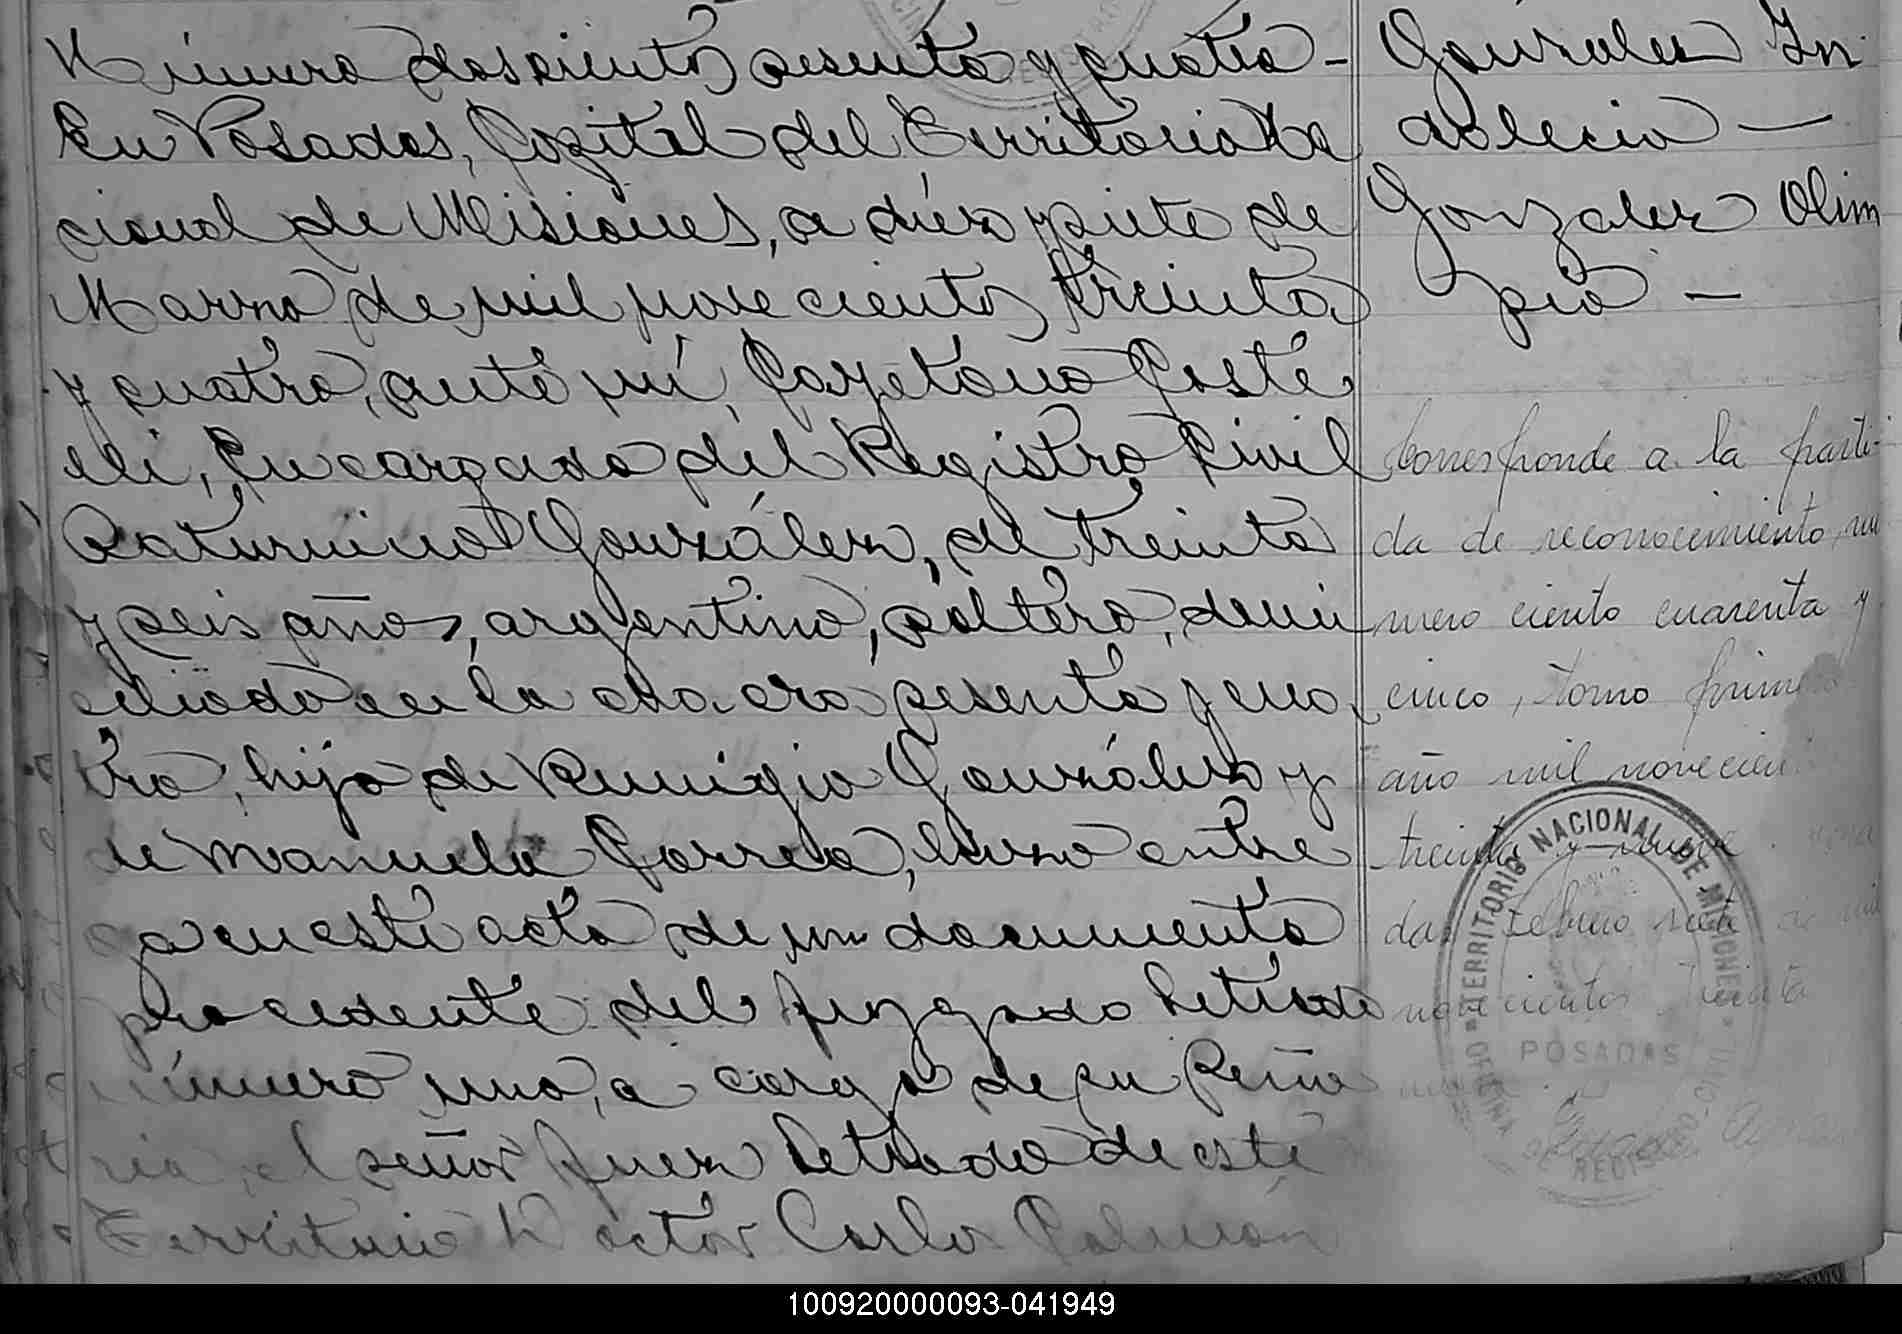 Número doscientos sesenta y cuatro -
En Posadas, Capital del Territorio Na
cional de Misiones, a diez y siete de
Marzo de mil novecientos treinta
y cuatro, ante mí, Cayetano Caste
lli, Encargado del Registro Civil
Saturnino González, de treinta
y seis años, argentino, soltero, domi
ciliado en la chacra sesenta y cua
tro, hijo de Remigio González y
de Manuela Correa, hizo entre
ga en este acto de un documento
procedente del Juzgado Letrado
número uno, a cargo de su Seño
ria, el señor Juez Letrado de este
Territorio Doctor Carlos
González In
dalecio —
Gonzalez Olim
pio —
Corresponde a la parti-
da de reconocimiento, nu
mero ciento cuarenta y
cinco, tomo primero
año mil novecien
treinta y nueve
da Febrero siete de mil
novecientos treinta
TERRITORIO NACIONAL DE MISIONES
POSADAS
100920000093-041949